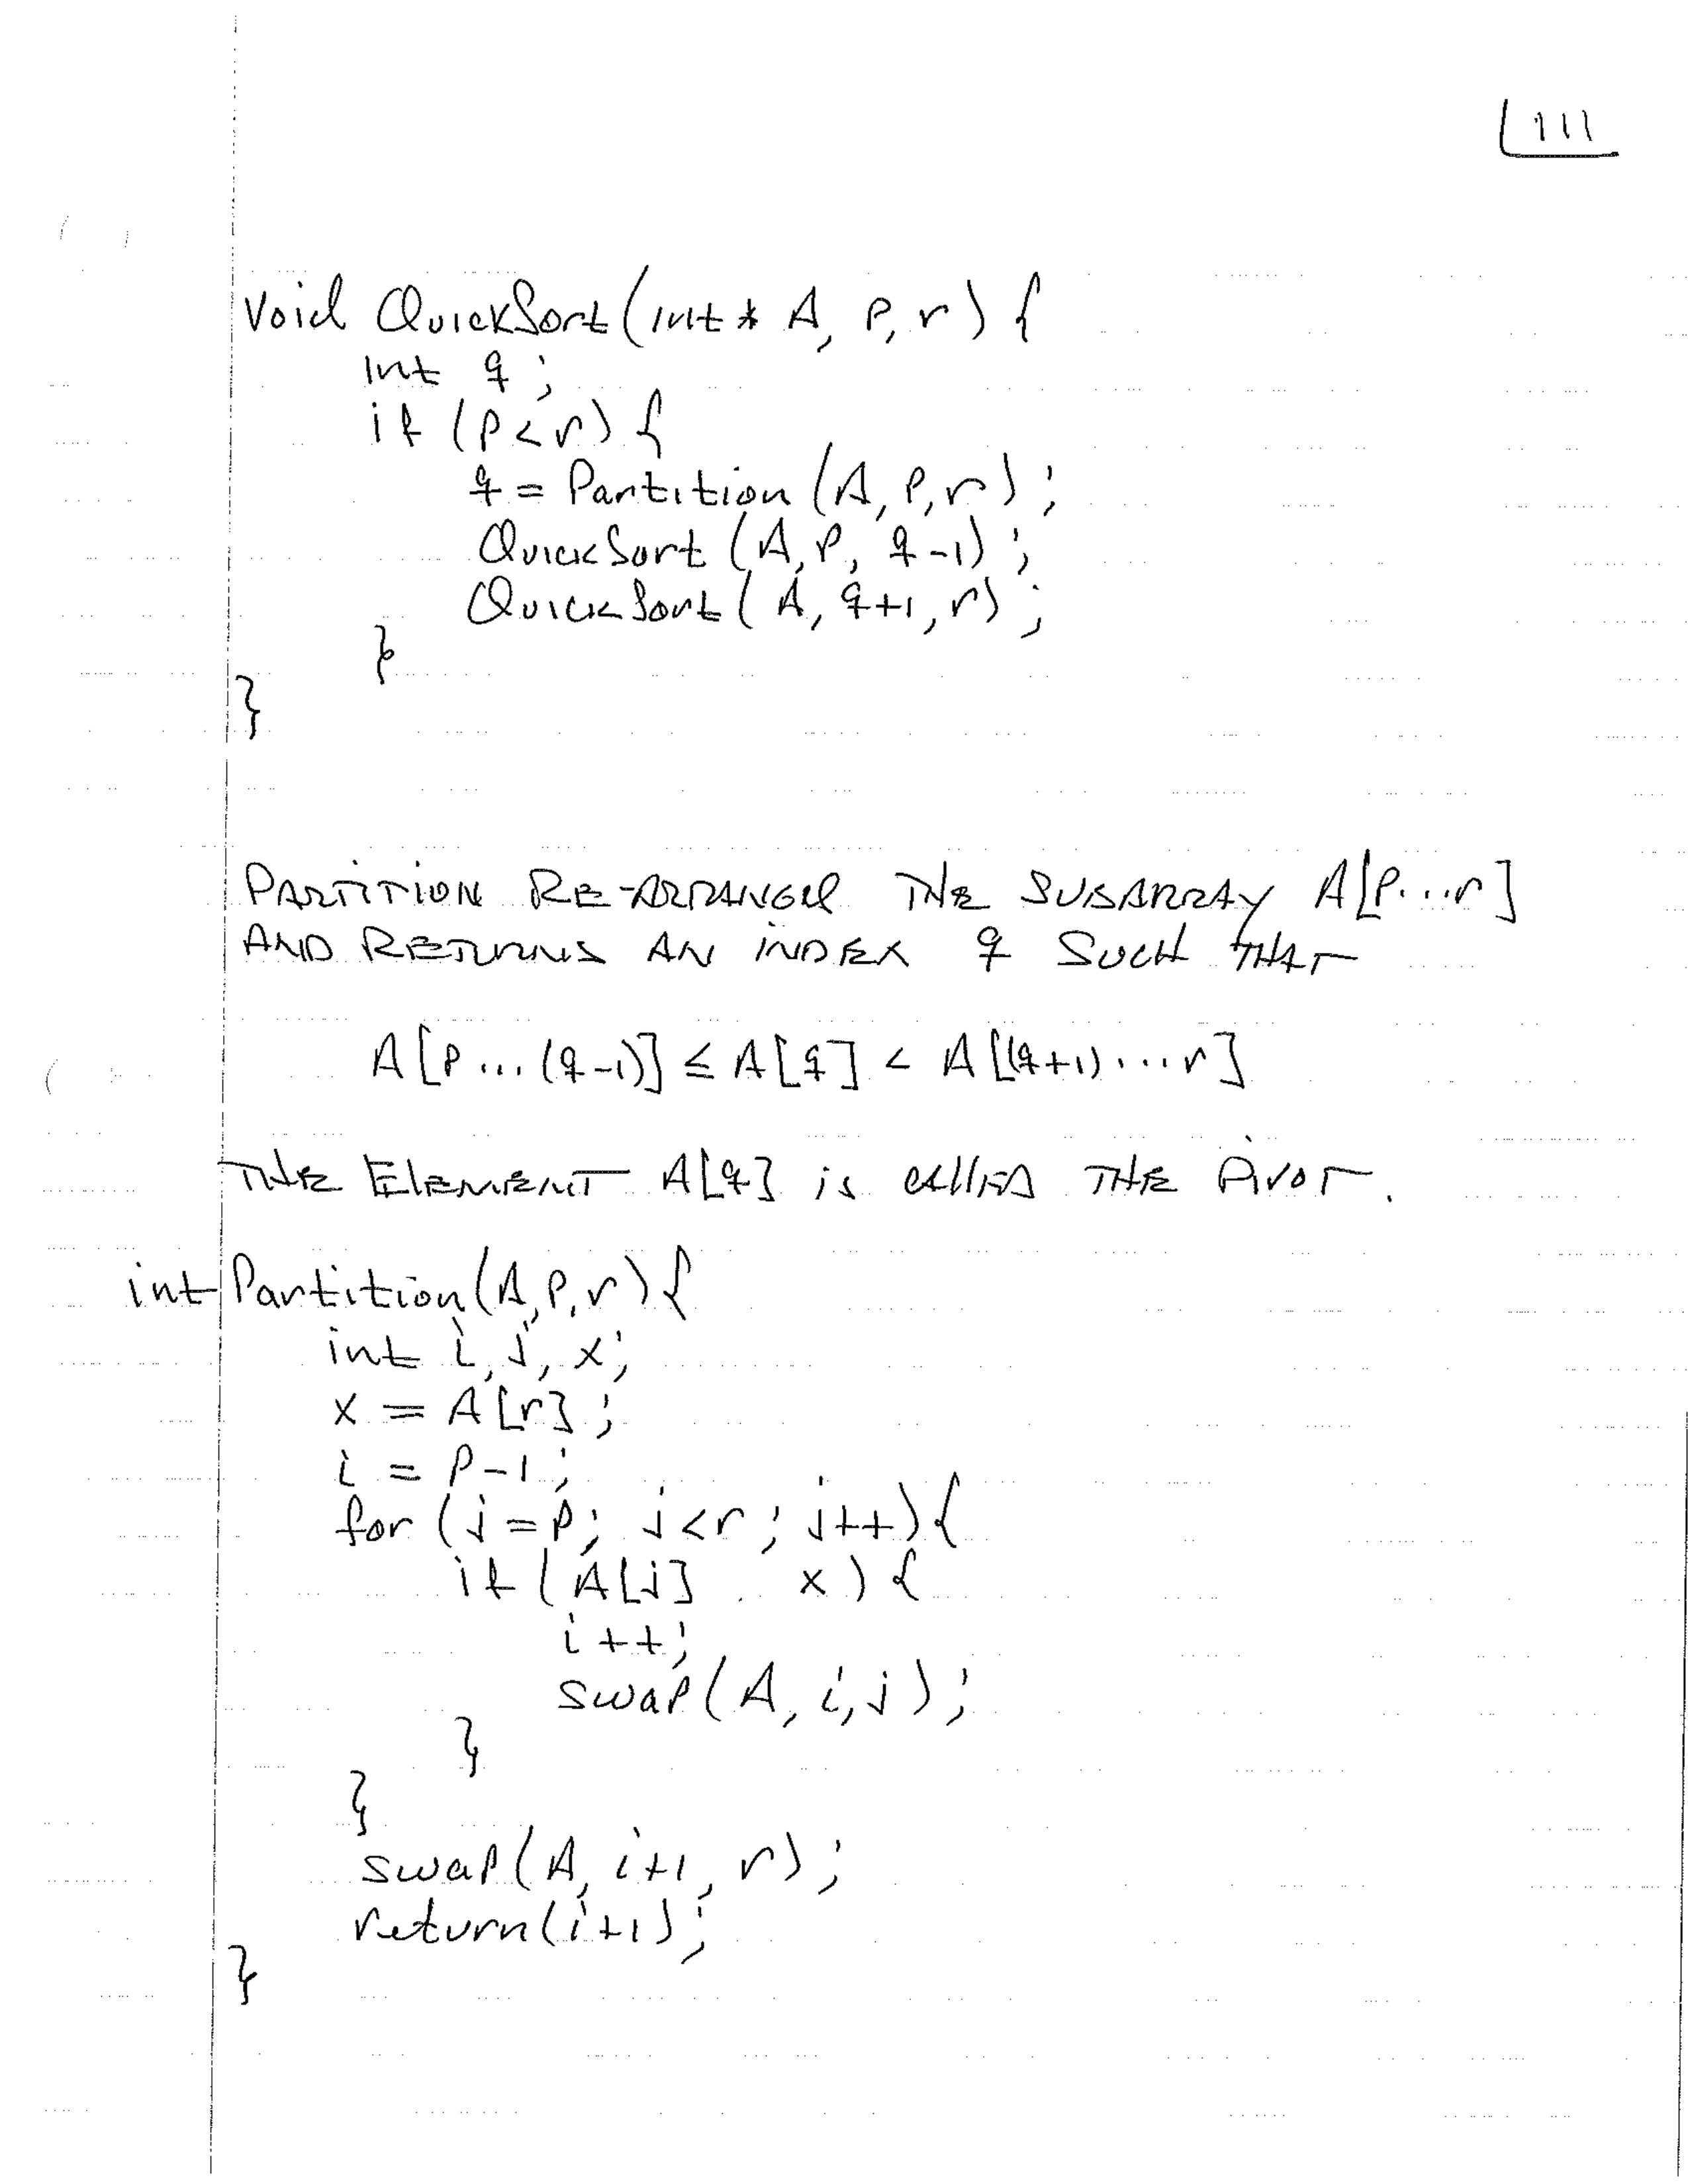 111
void QuickSort(int* A, p, r) {
int q;
if (p<r) {
q = Partition(A, p, r);
QuickSort(A, p, q-1);
QuickSort(A, q+1, r);
}
}
PARTITION RE-ARRANGES THE SUBARRAY A[p...r]
AND RETURNS AN INDEX q SUCH THAT
A[p...(q-1)] ≤ A[q] < A[(q+1)...r]
THE ElEMENT A[q] is cAllED THE PiVOT.
int Partition(A, p, r) {
int i, j, x;
x = A[r];
i = p-1;
for (j=p; j<r; j++) {
if (A[j] x) {
i++;
swap(A, i, j);
}
}
swap(A, i+1, r);
return(i+1);
}